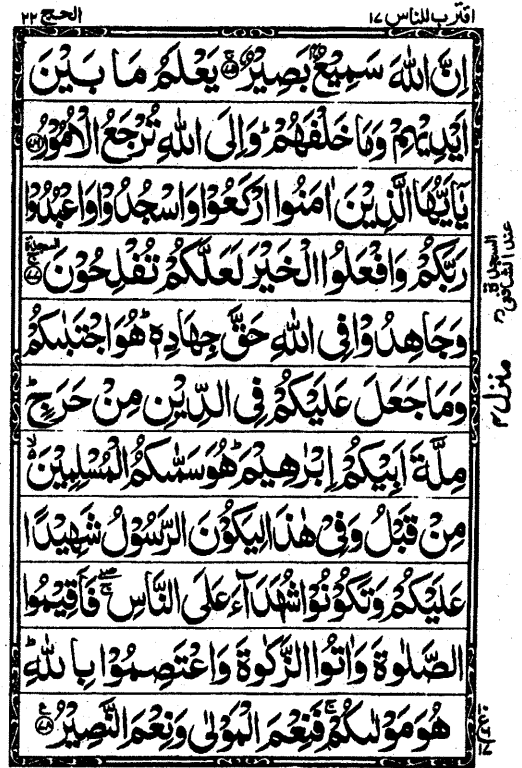 اقترب للناس ١٧
الحج ٢٢
اِنَّ اللّٰهَ سَمِيْعٌۢ بَصِيْرٌ ۚ﴿٧٥﴾ يَعْلَمُ مَا بَيْنَ
اَيْدِيْهِمْ وَمَا خَلْفَهُمْ ؕ وَاِلَى اللّٰهِ تُرْجَعُ الْاُمُوْرُ ﴿٧٦﴾
يٰۤاَيُّهَا الَّذِيْنَ اٰمَنُوا ارْكَعُوْا وَاسْجُدُوْا وَاعْبُدُوْا
رَبَّكُمْ وَافْعَلُوا الْخَيْرَ لَعَلَّكُمْ تُفْلِحُوْنَ ﴿٧٧﴾ السجدة
وَجَاهِدُوْا فِى اللّٰهِ حَقَّ جِهَادِهٖ ؕ هُوَ اجْتَبٰىكُمْ
وَمَا جَعَلَ عَلَيْكُمْ فِى الدِّيْنِ مِنْ حَرَجٍ ؕ
مِلَّةَ اَبِيْكُمْ اِبْرٰهِيْمَ ؕ هُوَ سَمّٰىكُمُ الْمُسْلِمِيْنَ ۙ
مِنْ قَبْلُ وَفِىْ هٰذَا لِيَكُوْنَ الرَّسُوْلُ شَهِيْدًا
عَلَيْكُمْ وَتَكُوْنُوْا شُهَدَآءَ عَلَى النَّاسِ ۖۚ فَاَقِيْمُوا
الصَّلٰوةَ وَاٰتُوا الزَّكٰوةَ وَاعْتَصِمُوْا بِاللّٰهِ ؕ
هُوَ مَوْلٰىكُمْ ۚ فَنِعْمَ الْمَوْلٰى وَنِعْمَ النَّصِيْرُ ﴿٧٨﴾
السجدة
عند الشافعي
منزل ٤